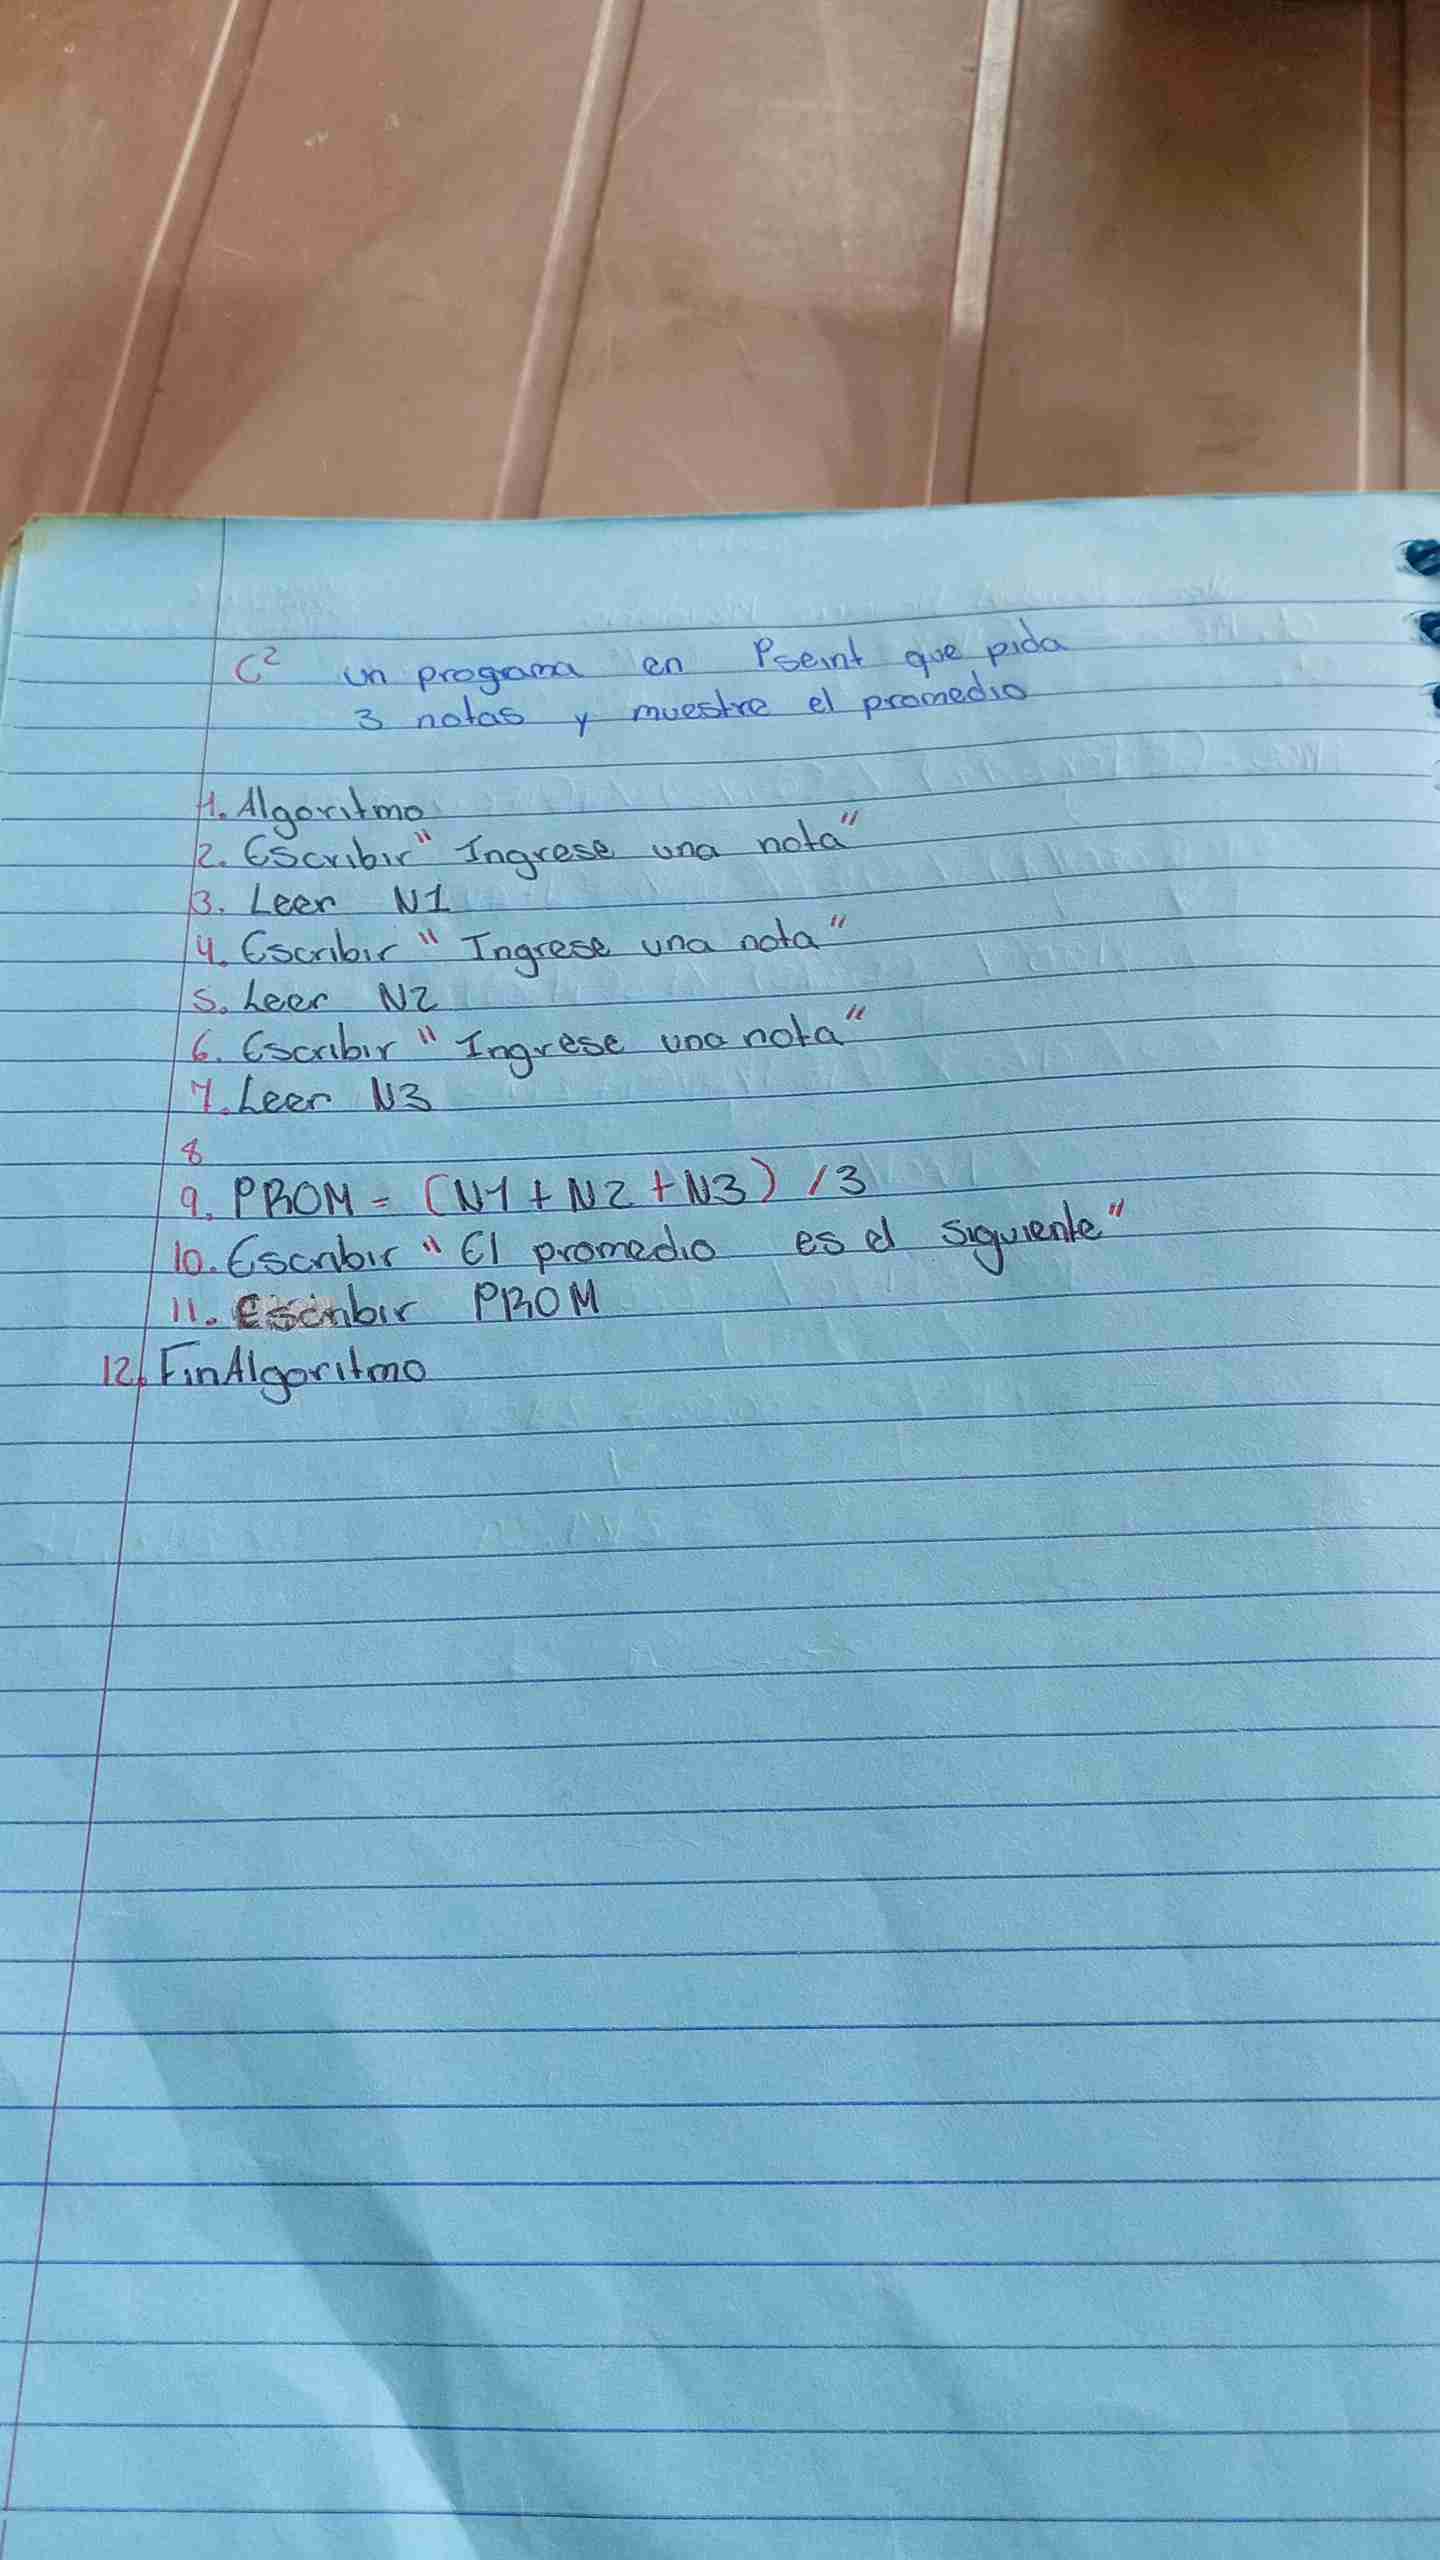 C² un programa en Pseint que pida
3 notas y muestre el promedio
1. Algoritmo
2. Escribir " Ingrese una nota"
3. Leer N1
4. Escribir " Ingrese una nota"
5. Leer N2
6. Escribir " Ingrese una nota"
7. Leer N3
8
9. PROM = (N1 + N2 + N3) / 3
10. Escribir " El promedio es el siguiente"
11. Escribir PROM
12. FinAlgoritmo